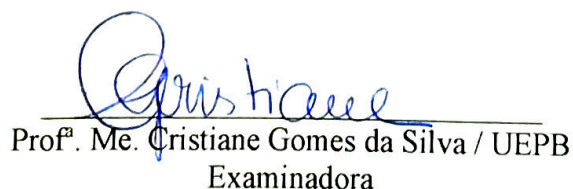 Cristiane
Profª. Me. Cristiane Gomes da Silva / UEPB
Examinadora